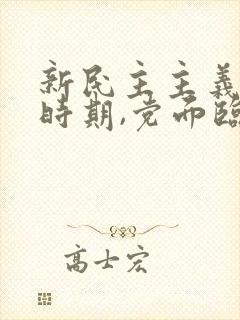 新民主主義
時期,党面臨
高士宏